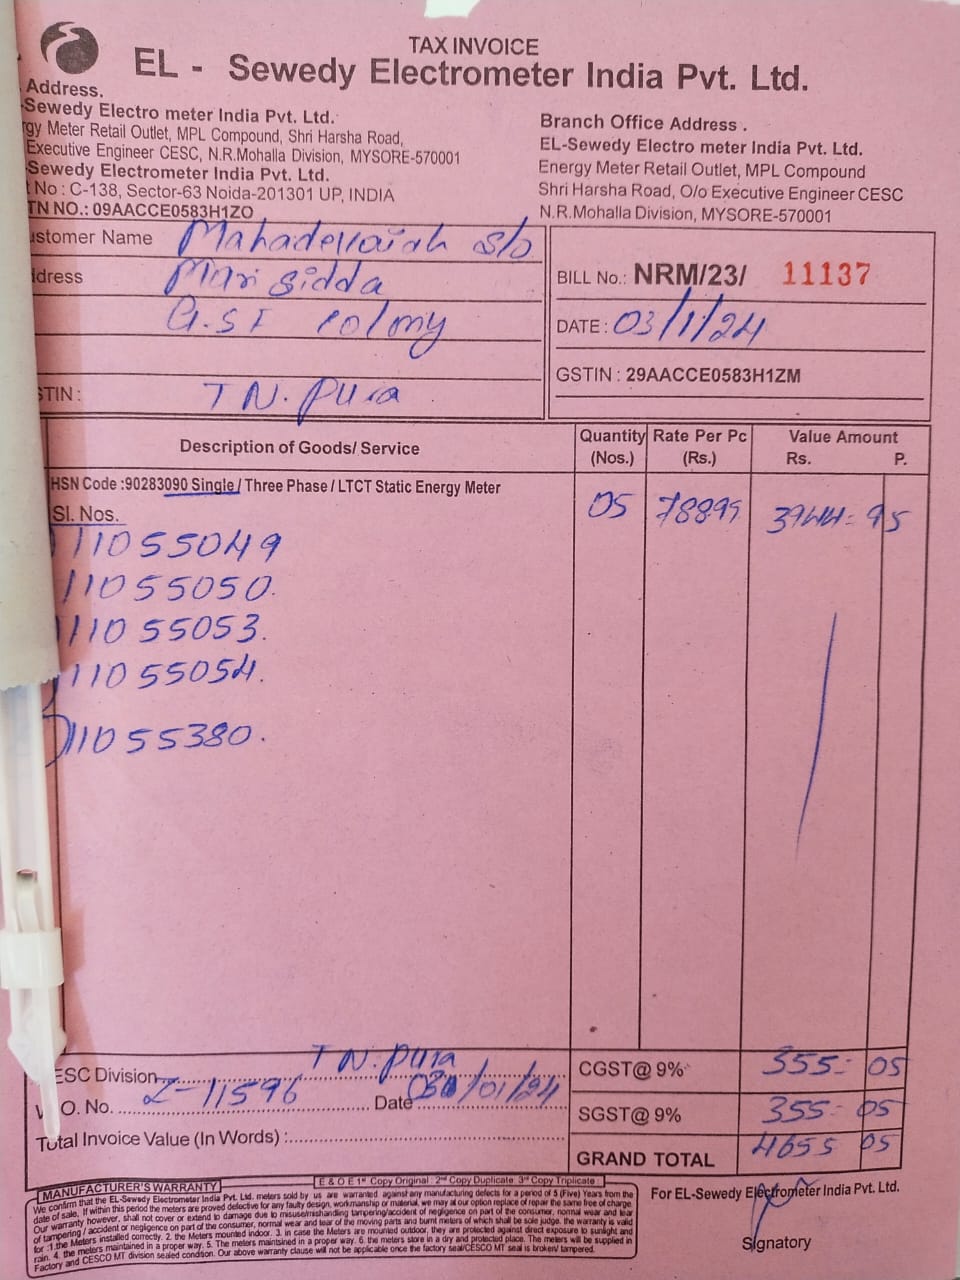 TAX INVOICE
EL - Sewedy Electrometer India Pvt. Ltd.
Address.
Sewedy Electro meter India Pvt. Ltd.
gy Meter Retail Outlet, MPL Compound, Shri Harsha Road,
Executive Engineer CESC, N.R.Mohalla Division, MYSORE-570001
Sewedy Electrometer India Pvt. Ltd.
No : C-138, Sector-63 Noida-201301 UP, INDIA
TN NO.: 09AACCE0583H1ZO
Branch Office Address .
EL-Sewedy Electro meter India Pvt. Ltd.
Energy Meter Retail Outlet, MPL Compound
Shri Harsha Road, O/o Executive Engineer CESC
N.R.Mohalla Division, MYSORE-570001
ustomer Name Mahadevaiah S/o
ddress Mari Sidda
G.S.F colony
STIN : T N. pura
BILL No.: NRM/23/ 11137
DATE : 03/1/24
GSTIN : 29AACCE0583H1ZM
Description of Goods/ Service Quantity (Nos.) Rate Per Pc (Rs.) Value Amount Rs. P.
HSN Code :90283090 Single / Three Phase / LTCT Static Energy Meter 05 78899 3944- 95
Sl. Nos.
11055049
11055050.
11055053.
11055054.
11055380.
ESC Division T N. pura
O. No. Z-11596 Date 03/01/24
Total Invoice Value (In Words) :
CGST@ 9% 355- 05
SGST@ 9% 355- 05
GRAND TOTAL 4655 05
E & O E 1st Copy Original : 2nd Copy Duplicate 3rd Copy Triplicate
MANUFACTURER'S WARRANTY
We confirm that the EL-Sewedy Electrometer India Pvt. Ltd. meters sold by us are warranted against any manufacturing defects for a period of 5 (Five) Years from the
date of sale. If within this period the meters are proved defective for any faulty design, workmanship or material, we may at our option replace of repair the same free of charge.
Our warranty however, shall not cover or extend to damage due to misuse/mishandling tampering/accident of negligence on part of the consumer, normal wear and tear
of tampering / accident or negligence on part of the consumer, normal wear and tear of the moving parts and burnt meters of which shall be sole judge. the warranty is valid
for :1.the Meters installed correctly. 2. the Meters mounted indoor. 3. in case the Meters are mounted outdoor, they are protected against direct exposure to sunlight and
rain. 4. the meters maintained in a proper way. 5. The meters maintsined in a proper way. 6. the meters store in a dry and protected place. The meters will be supplied in
Factory and CESCO MT division sealed condition. Our above warranty clause will not be applicable once the factory seal/CESCO MT seal is broken/ tampered.
For EL-Sewedy Electrometer India Pvt. Ltd.
Signatory